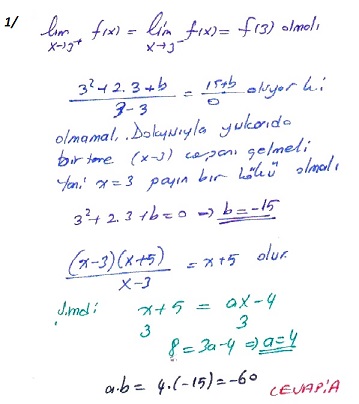 1/ lim x→3⁺ f(x) = lim x→3⁻ f(x) = f(3) olmalı
(3² + 2.3 + b) / (3 - 3) = (15 + b) / 0 oluyor ki
olmamalı. Dolayısıyla yukarıda
bir tane (x-3) çarpanı gelmeli
Yani x=3 payın bir kökü olmalı
3² + 2.3 + b = 0 ⇒ b = -15
(x-3)(x+5) / x-3 = x+5 olur.
Şimdi x+5 = ax-4
3 3
8 = 3a-4 ⇒ a=4
a.b = 4.(-15) = -60
CEVAP: A